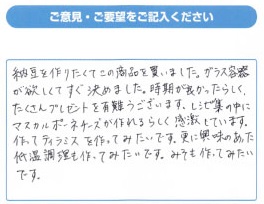 ご意見・ご要望をご記入ください
納豆を作りたくてこの商品を買いました。ガラス容器
が欲しくてすぐ決めました。時期が良かったらしく、
たくさんプレゼントを有難うございます。レシピ集の中に
マスカルポーネチーズが作れるらしく感激しています。
作ってティラミスを作ってみたいです。更に興味のあった
低温調理も作ってみたいです。みそも作ってみたい
です。